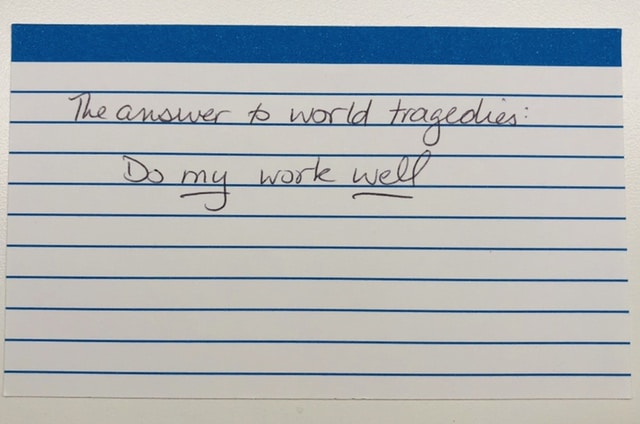 The answer to world tragedies:
Do my work well